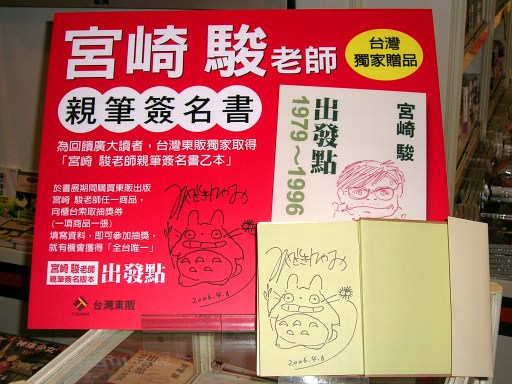 宮崎 駿老師
台灣
獨家贈品
親筆簽名書
為回饋廣大讀者，台灣東販獨家取得
「宮崎 駿老師親筆簽名書乙本」
於書展期間購買東販出版
宮崎 駿老師任一商品，
向櫃台索取抽獎券
(一項商品一張)
填寫資料，即可參加抽獎，
就有機會獲得「全台唯一」
宮崎 駿老師
親筆簽名版本
出發點
台灣東販
TOHAN
宮崎 駿
出發點
1979～1996
みやざきはやお
2006.4.8
みやざきはやお
2006.4.8